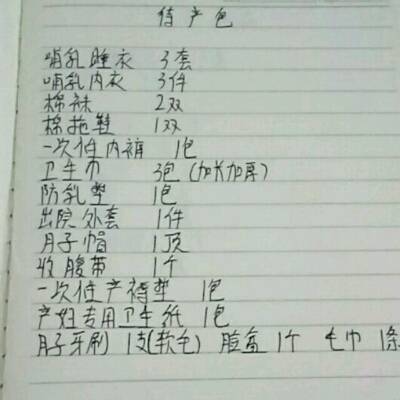 待产包
哺乳睡衣 3套
哺乳内衣 3件
棉袜 2双
棉拖鞋 1双
一次性内裤 1包
卫生巾 3包(加长加厚)
防乳垫 1包
出院外套 1件
月子帽 1顶
收腹带 1个
一次性产褥垫 1包
产妇专用卫生纸 1包
月子牙刷 1支(软毛) 脸盆1个 毛巾 1条